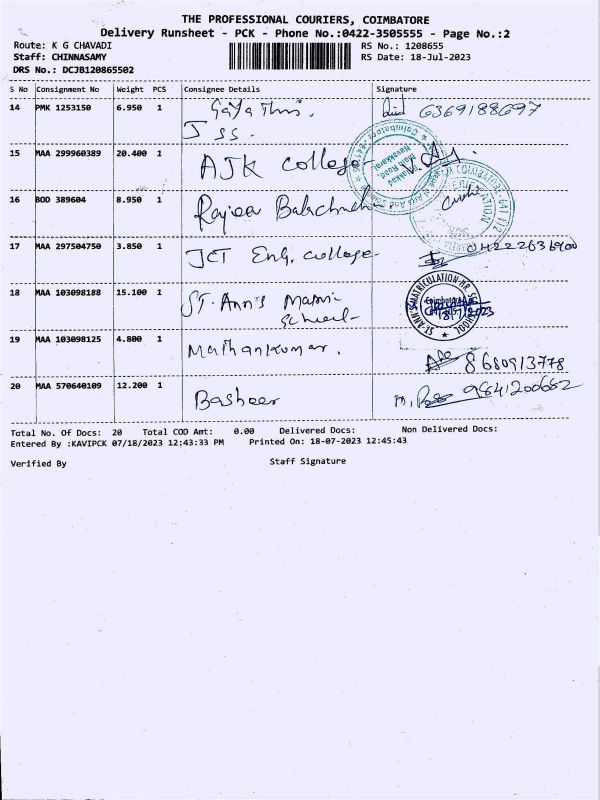 THE PROFESSIONAL COURIERS, COIMBATORE
Delivery Runsheet - PCK - Phone No.:0422-3505555 - Page No.:2
Route: K G CHAVADI RS No.: 1208655
Staff: CHINNASAMY RS Date: 18-Jul-2023
DRS No.: DCJB120865502
S No Consignment No Weight PCS Consignee Details Signature
14 PMK 1253150 6.950 1 6369188697
J SS.
15 MAA 299960389 20.400 1 AJK college
16 BOD 389604 8.950 1
17 MAA 297504750 3.850 1 JCT Eng. college 04222636900
18 MAA 103098188 15.100 1 ST. Ann's Matri
School
ST. ANN'S MATRICULATION HR. SCHOOL
Coimbatore
18/7/2023
19 MAA 103098125 4.800 1 Mathankumar. 8680913778
20 MAA 570640109 12.200 1 Basheer 9841200662
Total No. Of Docs: 20 Total COD Amt: 0.00 Delivered Docs: Non Delivered Docs:
Entered By :KAVIPCK 07/18/2023 12:43:33 PM Printed On: 18-07-2023 12:45:43
Verified By Staff Signature